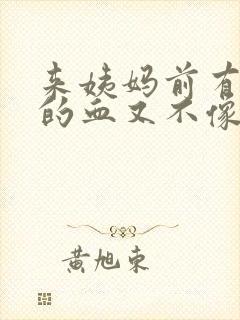 来姨妈前有
的血又不像
黄旭东